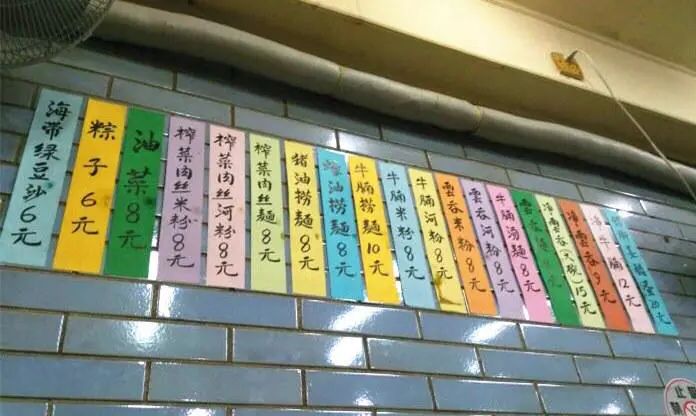 海帶綠豆沙6元
粽子6元
油菜8元
榨菜肉丝米粉8元
榨菜肉丝河粉8元
榨菜肉丝麵8元
猪油捞麵8元
蠔油捞麵8元
牛腩捞麵10元
牛腩米粉8元
牛腩河粉8元
雲吞米粉8元
雲吞河粉8元
牛腩汤麵8元
雲吞
净雲吞(大碗)15元
净雲吞9元
净牛腩12元
20元
止